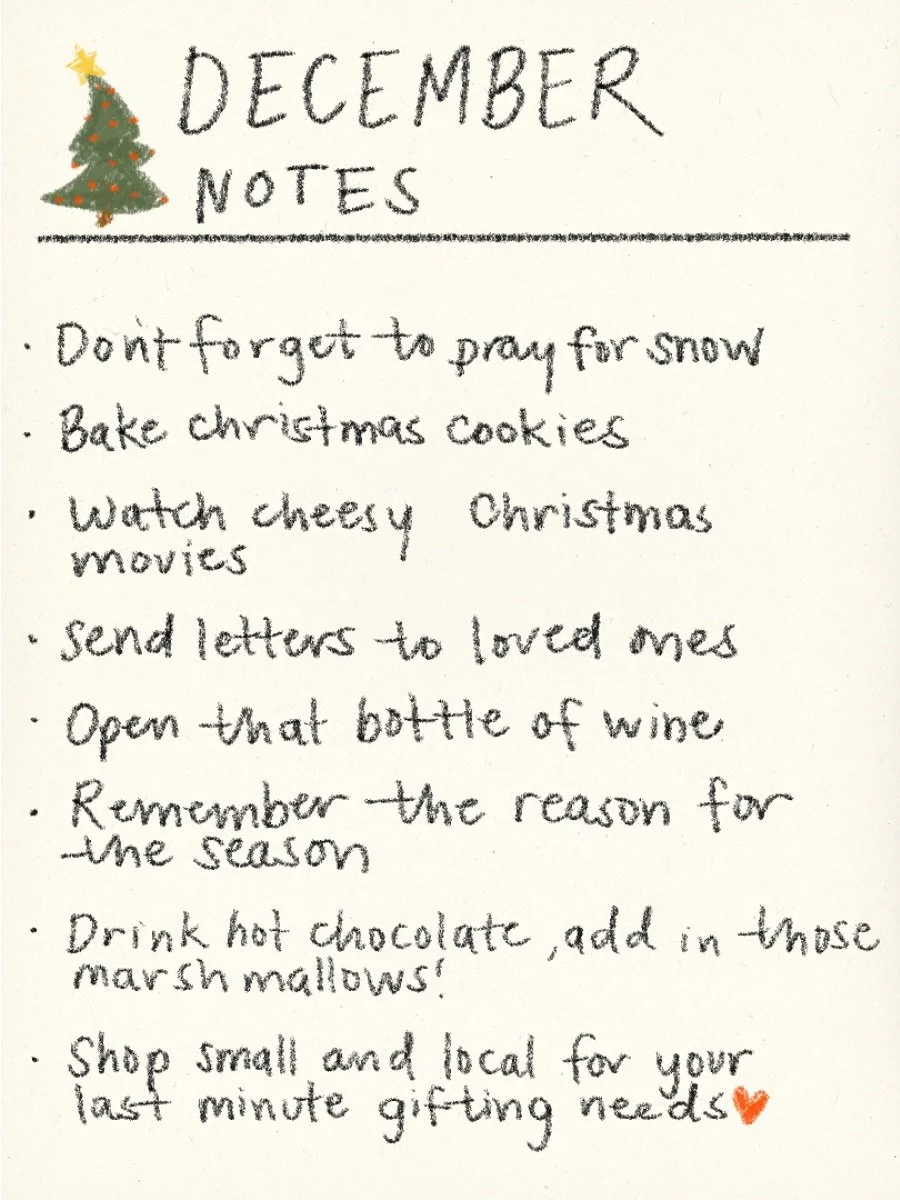 DECEMBER
NOTES
· Don't forget to pray for snow
· Bake christmas cookies
· Watch cheesy Christmas
movies
· Send letters to loved ones
· Open that bottle of wine
· Remember the reason for
the season
· Drink hot chocolate, add in those
marshmallows!
· Shop small and local for your
last minute gifting needs